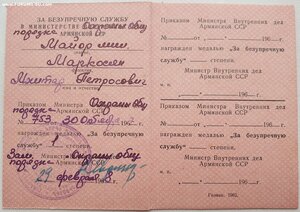 ЗА БЕЗУПРЕЧНУЮ СЛУЖБУ
В МИНИСТЕРСТВЕ Охраны общ.
порядка АРМЯНСКОЙ ССР
Майор
Маркосян
Мхитар Петросович
имя и отчество
Приказом Министра Охраны общ
порядка Армянской ССР
№ 753 30 196
награжден медалью „За безупречную
службу“ 1 степени.
Зам. Охраны общ.
порядка
29 февраля 8
Приказом Министра Внутренних дел
Армянской ССР
№ от 196 г.
награжден медалью „За безупречную
службу“ степени.
Министр Внутренних дел
Армянской ССР
196 г.
Приказом Министра Внутренних дел
Армянской ССР
№ от 196 г.
награжден медалью „За безупречную
службу“ степени.
Министр Внутренних дел
Армянской ССР
196 г.